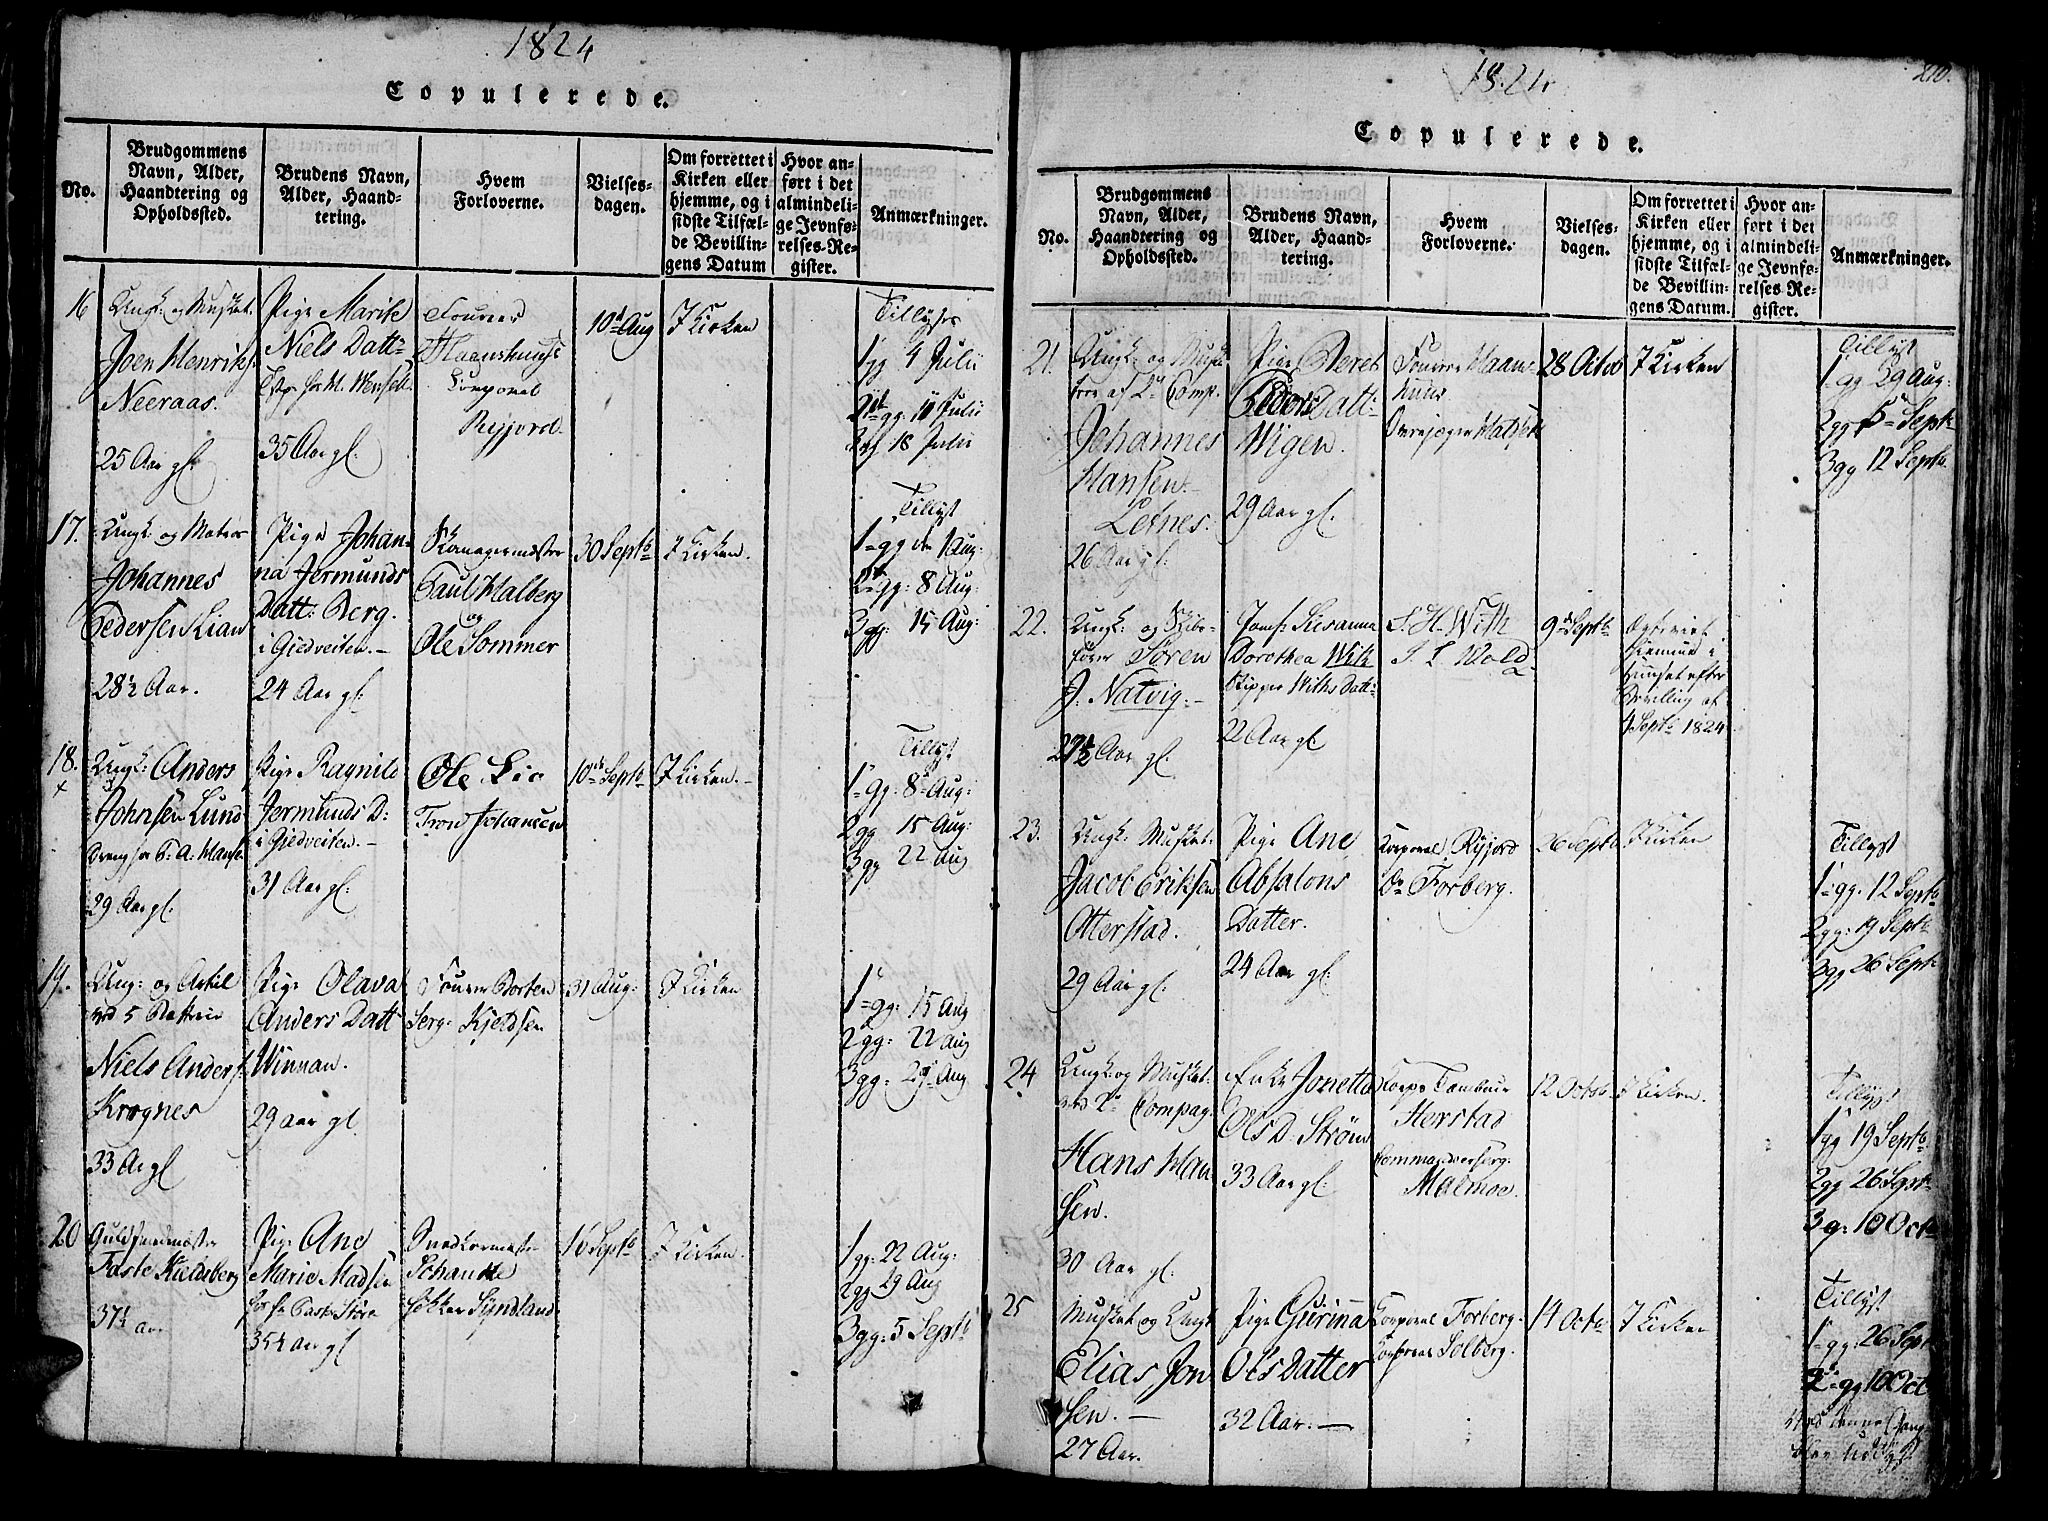 1824
Copulerede.
No.
Brudgommens
Navn, Alder,
Haandtering og
Opholdssted.
Brudens Navn,
Alder, Haand-
tering.
Hvem
Forloverne.
Vielses-
dagen.
Om forrettet i
Kirken eller
hjemme, og i
sidste Tilfæl-
de Bevillin-
gens Datum
Hvor an-
ført i det
almindeli-
ge Jevnfø-
relses-Re-
gister.
Anmærkninger.
16
Ungk: og Musket.
Joen Henriks:
Neeraas.
25 Aar gl:
Pige Marite
Niels Datt:
35 Aar gl.
Fourer
Corporal
Ryjord.
10d Aug
I Kirken
Tillyst
1 gg 4 Julii
2d gg: 11 Julii
18 Julii
17.
Ungk: og Matros
Johannes
Pedersen Lian
28½ Aar.
Pige Johan-
na Jermunds
Datt: Berg.
i Giedveiten.-
24 Aar gl:
Paul Halberg
og
Ole Sommer
30 Septb
I Kirken.
Tillyst
1 gg den 1 Aug:
2 gg: 8 Aug:
3 gg: 15 Aug:
18.
Ungk: Anders
Johnsen Lund
Dreng for
29 Aar gl.
Pige Ragnild
Jermunds D:
i Giedveiten.-
31 Aar gl:
Ole Lie
Trond Johansen
10de Septb
I Kirken.-
Tillyst
1 gg: 8 Aug:
2 gg 15 Aug:
3 gg 22 Aug
19.
Ung: og
ved 5
Niels Anders:
Krognes
33 Ar gl
Pige Olava
Anders Datt
Winnan.
29 aar gl.
Fourer Morten
Serg: Kjeldsen
31 Aug:
I Kirken
1 gg: 15 Aug
2 gg: 22 aug
3 gg: 29 Aug
20
Guldsmedmester
Faste Kieldsberg
37½ aar
Pige Ane
Marie Madsen
35½ aar gl
Schanke
Sÿndland
16 Septb
I Kirken.
1 gg: 22 Aug:
2 gg 29 Aug
3 gg: 5 Septb
1824
210.
Copulerede.
No.
Brudgommens
Navn, Alder,
Haandtering og
Opholdsted.
Brudens Navn,
Alder, Haand-
tering.
Hvem
Forloverne.
Vielses-
dagen.
Om forrettet i
Kirken eller
hjemme, og i
sidste Tilfæl-
de Bevillin-
gens Datum.
Hvor an-
ført i det
almindeli-
ge Jevnfø-
relses Re-
gister.
Anmærkninger.
21.
Ungk: og Muske-
teer af 2d Comp.
Johannes
Hansen.-
Letnes.
26 Aar gl.
Pige Beret
Peders Datt:
Wigen.
29 Aar gl.
Fourer
28 Octob
I Kirken
Tillyst
1 gg 29 Aug:
2 gg 5 Septb
3 gg 12 Septb.
22.
Ungk: og
Søren
J. Natvig.-
27½ Aar gl.
Jomf: Susanna
Dorothea With
Skipper Withs Datt:
22 Aar gl
S. H. With
9d Septb
hiemme i
Huuset efter
Bevilling af
4 Septb 1824
23.
Ungk: Musket.
Jacob Eriksen
Otterstad.
29 Aar gl.
Pige Ane
Absalons
Datter.
24 Aar gl:
Korporal Ryjord
Do Forberg.
26 Septb
I Kirken
Tillyst
1 gg: 12 Septb
2 gg: 19 Septb
3 gg 26 Septb
24
Ungk: og Musket:
ved 2d Compag.
Hans Han
sen.
30 Aar gl.
Enke Jonetta
Ols D: Strøm
33 Aar gl:
Tambour
Herstad
Commandeerserg:
Malmoe.
12 Octob.
I Kirken.
Tillyst
1 gg 19 Septb
2 gg 26 Septb
3 g: 10 Octb
25
Musket og Ungk
Elias Jon
sen.-
27 Aar.
Pige Gurinna
Ols Datter
32 Aar.-
Corporal Forberg.
Corporal Solberg.
14 Octb
I Kirken
Tillyst
1 gg: 26 Septb
2 gg 10 Oct